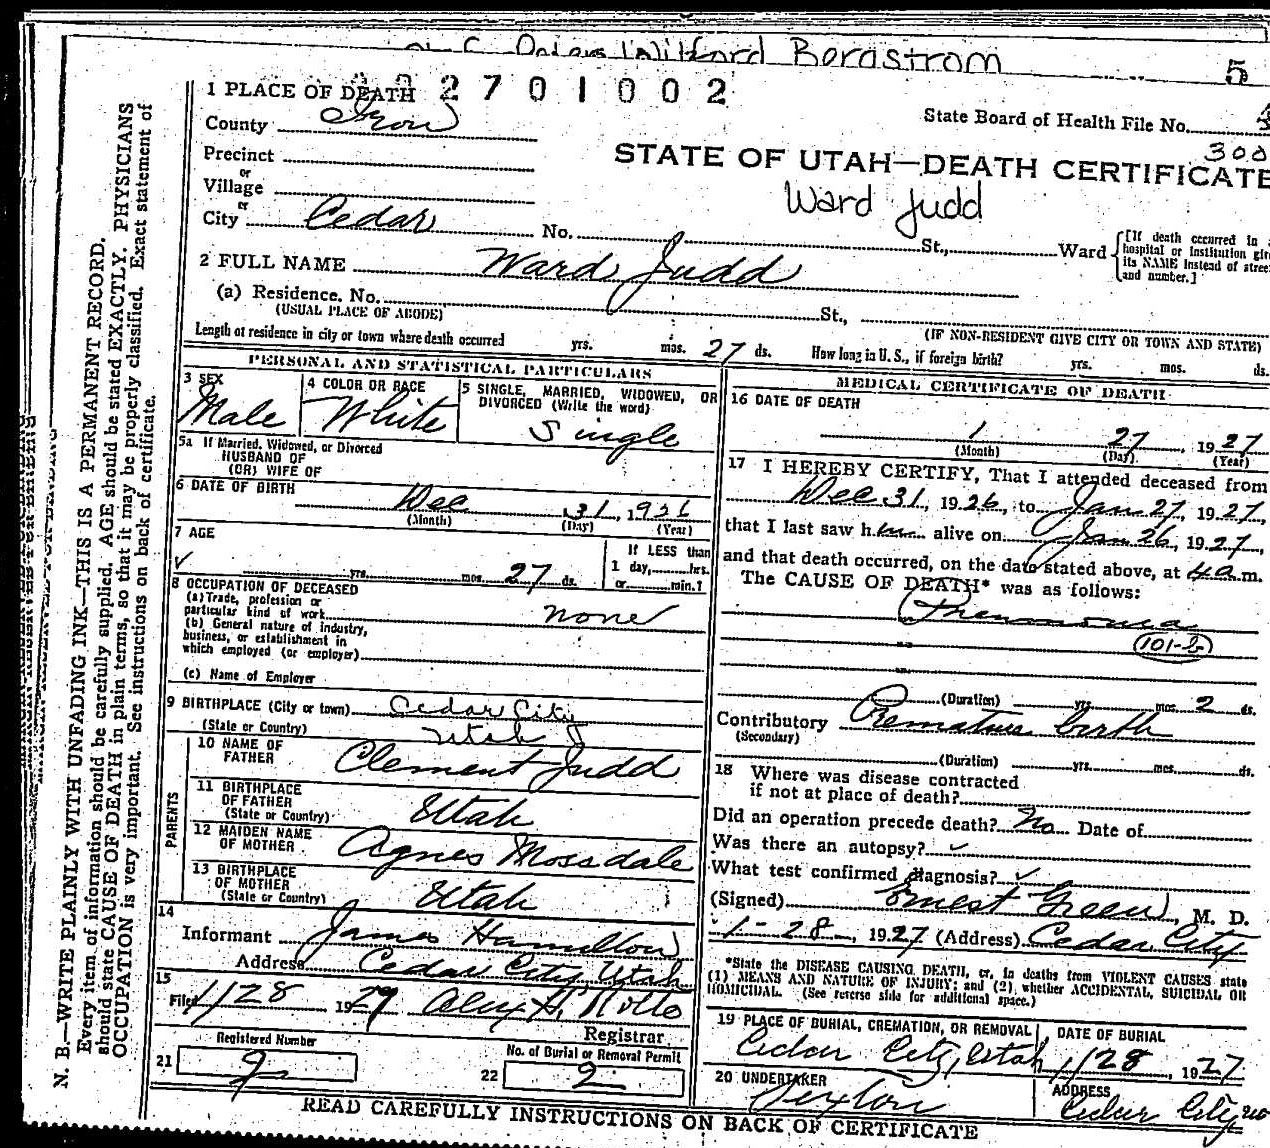 Wilford Bergstrom
5
2701002
1 PLACE OF DEATH
County Iron
State Board of Health File No.
300
Precinct
or
Village
or
City Cedar No. St., Ward
STATE OF UTAH—DEATH CERTIFICATE
Ward Judd
[If death occurred in a
hospital or institution
its NAME instead of
and number.]
2 FULL NAME Ward Judd
(a) Residence. No. St.,
(USUAL PLACE OF ABODE) (IF NON-RESIDENT GIVE CITY OR TOWN AND STATE)
Length of residence in city or town where death occurred yrs. mos. 27 ds. How long in U. S., if foreign birth? yrs. mos. ds.
PERSONAL AND STATISTICAL PARTICULARS
3 SEX
Male
4 COLOR OR RACE
White
5 SINGLE, MARRIED, WIDOWED, OR
DIVORCED (Write the word)
Single
5a If Married, Widowed, or Divorced
HUSBAND OF
(OR) WIFE OF
6 DATE OF BIRTH
Dec 31, 1926
(Month) (Day) (Year)
7 AGE
yrs. mos. 27 ds.
If LESS than
1 day,......hrs.
or......min.?
8 OCCUPATION OF DECEASED
(a) Trade, profession or
particular kind of work none
(b) General nature of industry,
business, or establishment in
which employed (or employer)
(c) Name of Employer
9 BIRTHPLACE (City or town) Cedar City
(State or Country) Utah
PARENTS
10 NAME OF
FATHER Clement Judd
11 BIRTHPLACE
OF FATHER
(State or Country) Utah
12 MAIDEN NAME
OF MOTHER Agnes Mossdale
13 BIRTHPLACE
OF MOTHER
(State or Country) Utah
14
Informant James Hamilton
Address Cedar City Utah
15
Filed 1/28 1927 Alex H. Rollo
Registrar
Registered Number
21 2
No. of Burial or Removal Permit
22 2
MEDICAL CERTIFICATE OF DEATH
16 DATE OF DEATH
1 27, 1927
(Month) (Day) (Year)
17 I HEREBY CERTIFY, That I attended deceased from
Dec 31, 1926, to Jan 27, 1927,
that I last saw him alive on Jan 26, 1927,
and that death occurred, on the date stated above, at 4 a.m.
The CAUSE OF DEATH* was as follows:
Pneumonia
101-b
(Duration) yrs. mos. 2 ds.
Contributory Premature birth
(Secondary)
(Duration) yrs. mos. ds.
18 Where was disease contracted
if not at place of death?
Did an operation precede death? No Date of
Was there an autopsy? ✓
What test confirmed diagnosis? ✓
(Signed) Ernest Green, M. D.
1-28-, 1927 (Address) Cedar City
*State the DISEASE CAUSING DEATH, or, in deaths from VIOLENT CAUSES state
(1) MEANS AND NATURE OF INJURY; and (2) whether ACCIDENTAL, SUICIDAL OR
HOMICIDAL. (See reverse side for additional space.)
19 PLACE OF BURIAL, CREMATION, OR REMOVAL
Cedar City, Utah
DATE OF BURIAL
1/28, 1927
20 UNDERTAKER
Sexton
ADDRESS
Cedar City
READ CAREFULLY INSTRUCTIONS ON BACK OF CERTIFICATE
N. B.—WRITE PLAINLY WITH UNFADING INK—THIS IS A PERMANENT RECORD.
Every item of information should be carefully supplied. AGE should be stated EXACTLY. PHYSICIANS
should state CAUSE OF DEATH in plain terms, so that it may be properly classified. Exact statement of
OCCUPATION is very important. See instructions on back of certificate.